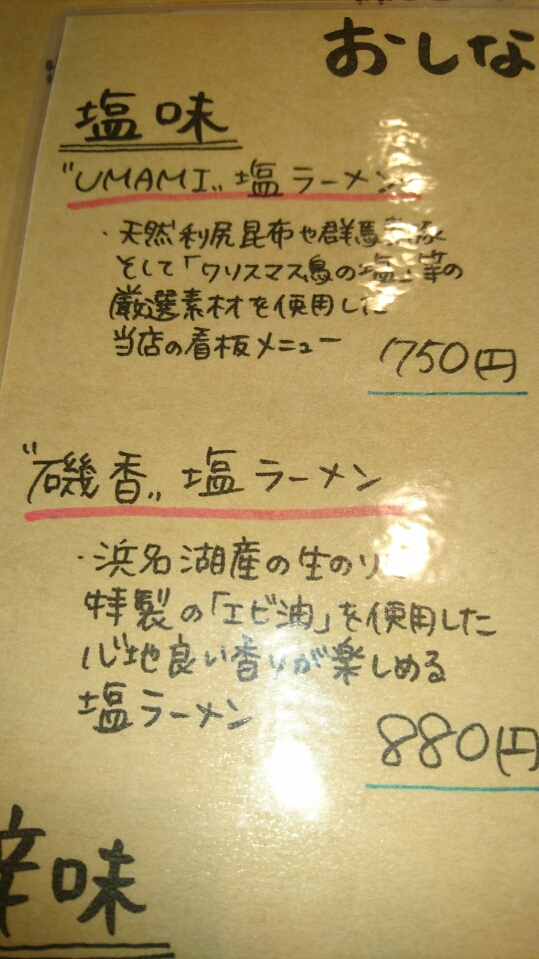 おしな
塩味
"UMAMI" 塩ラーメン
・天然利尻昆布や群馬
そして「クリスマス島の塩」等の
厳選素材を使用した
当店の看板メニュー
750円
"磯香" 塩ラーメン
・浜名湖産の生のり
特製の「エビ油」を使用した
心地良い香りが楽しめる
塩ラーメン
880円
辛味